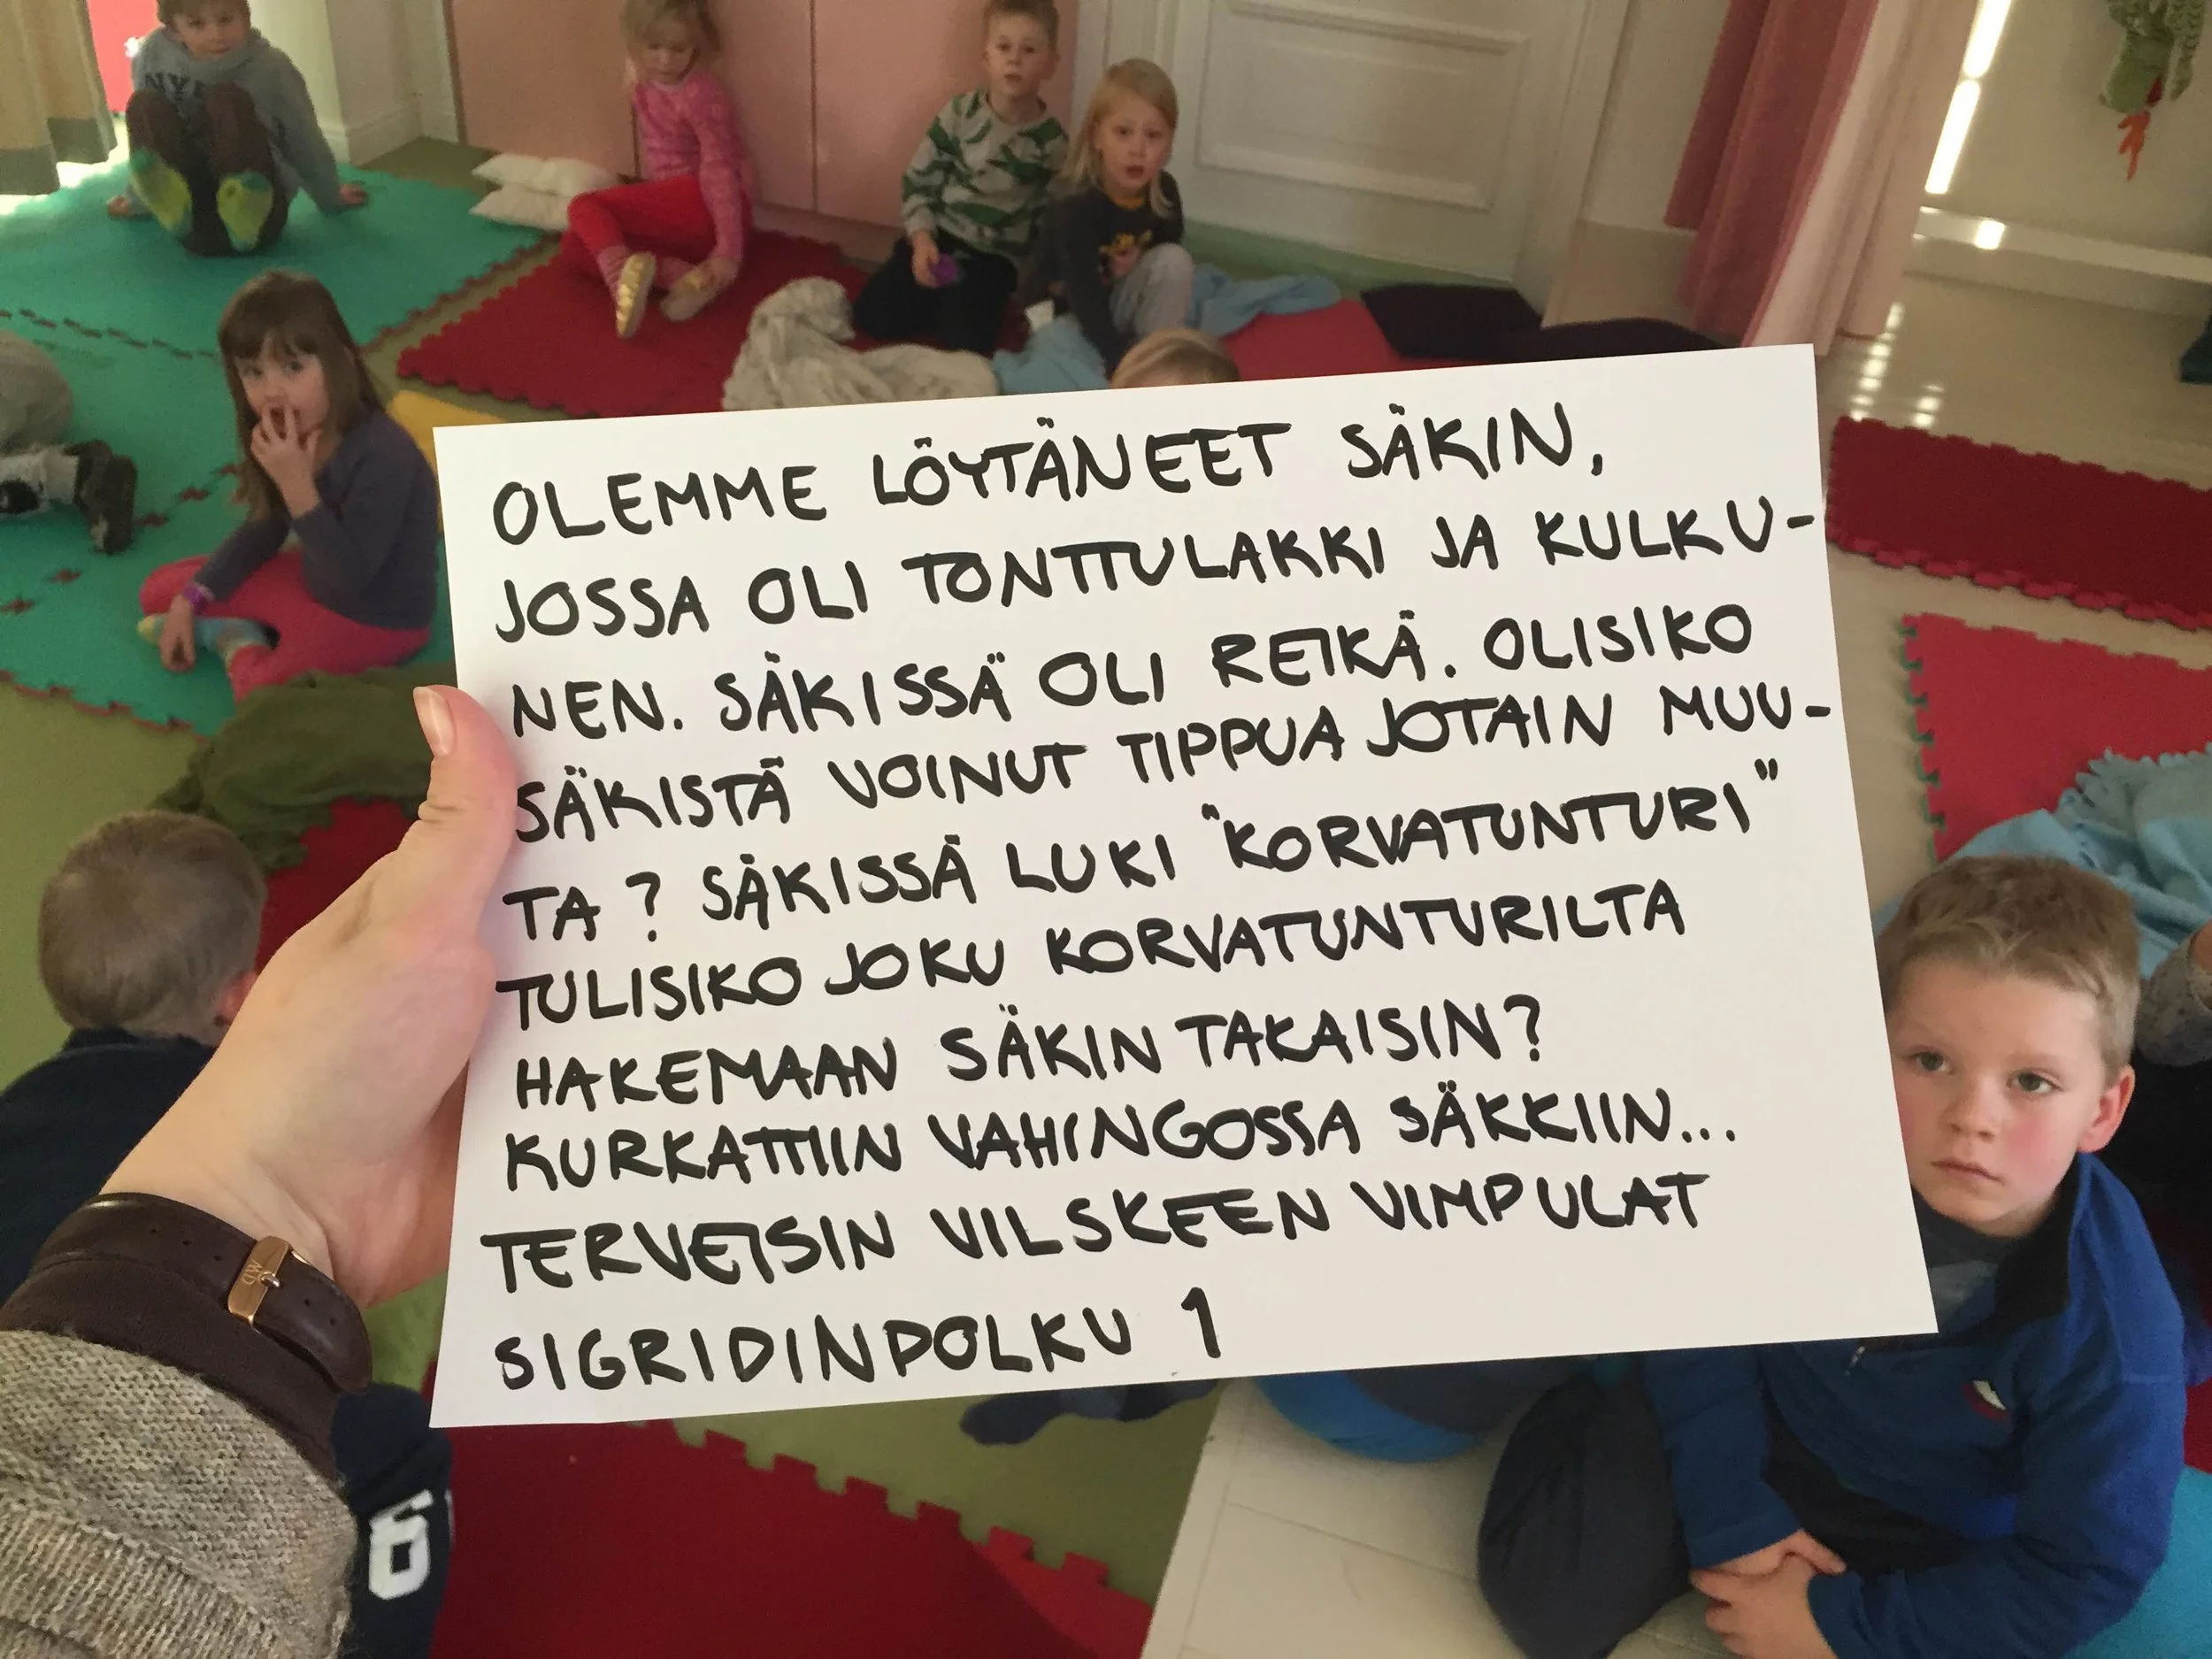 OLEMME LÖYTÄNEET SÄKIN,
JOSSA OLI TONTTULAKKI JA KULKU-
NEN. SÄKISSÄ OLI REIKÄ. OLISIKO
SÄKISTÄ VOINUT TIPPUA JOTAIN MUU-
TA? SÄKISSÄ LUKI "KORVATUNTURI"
TULISIKO JOKU KORVATUNTURILTA
HAKEMAAN SÄKIN TAKAISIN?
KURKATTIIN VAHINGOSSA SÄKKIIN...
TERVEISIN VILSKEEN VIMPULAT
SIGRIDINPOLKU 1